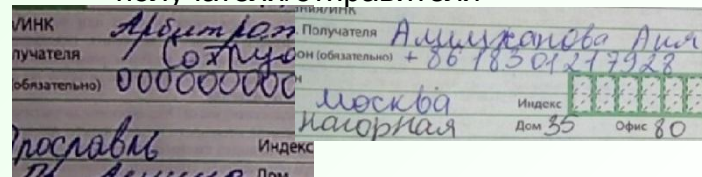 получателя/отправителя
/ИНК Арбитраж
лучателя / Сотруд
обязательно) 000000000
Ярославль Индекс
Дом
ния/ИНК
Получателя Алимжанова Аия
он (обязательно) + 86 18301217928
Москва Индекс
Нагорная Дом 35 Офис 80